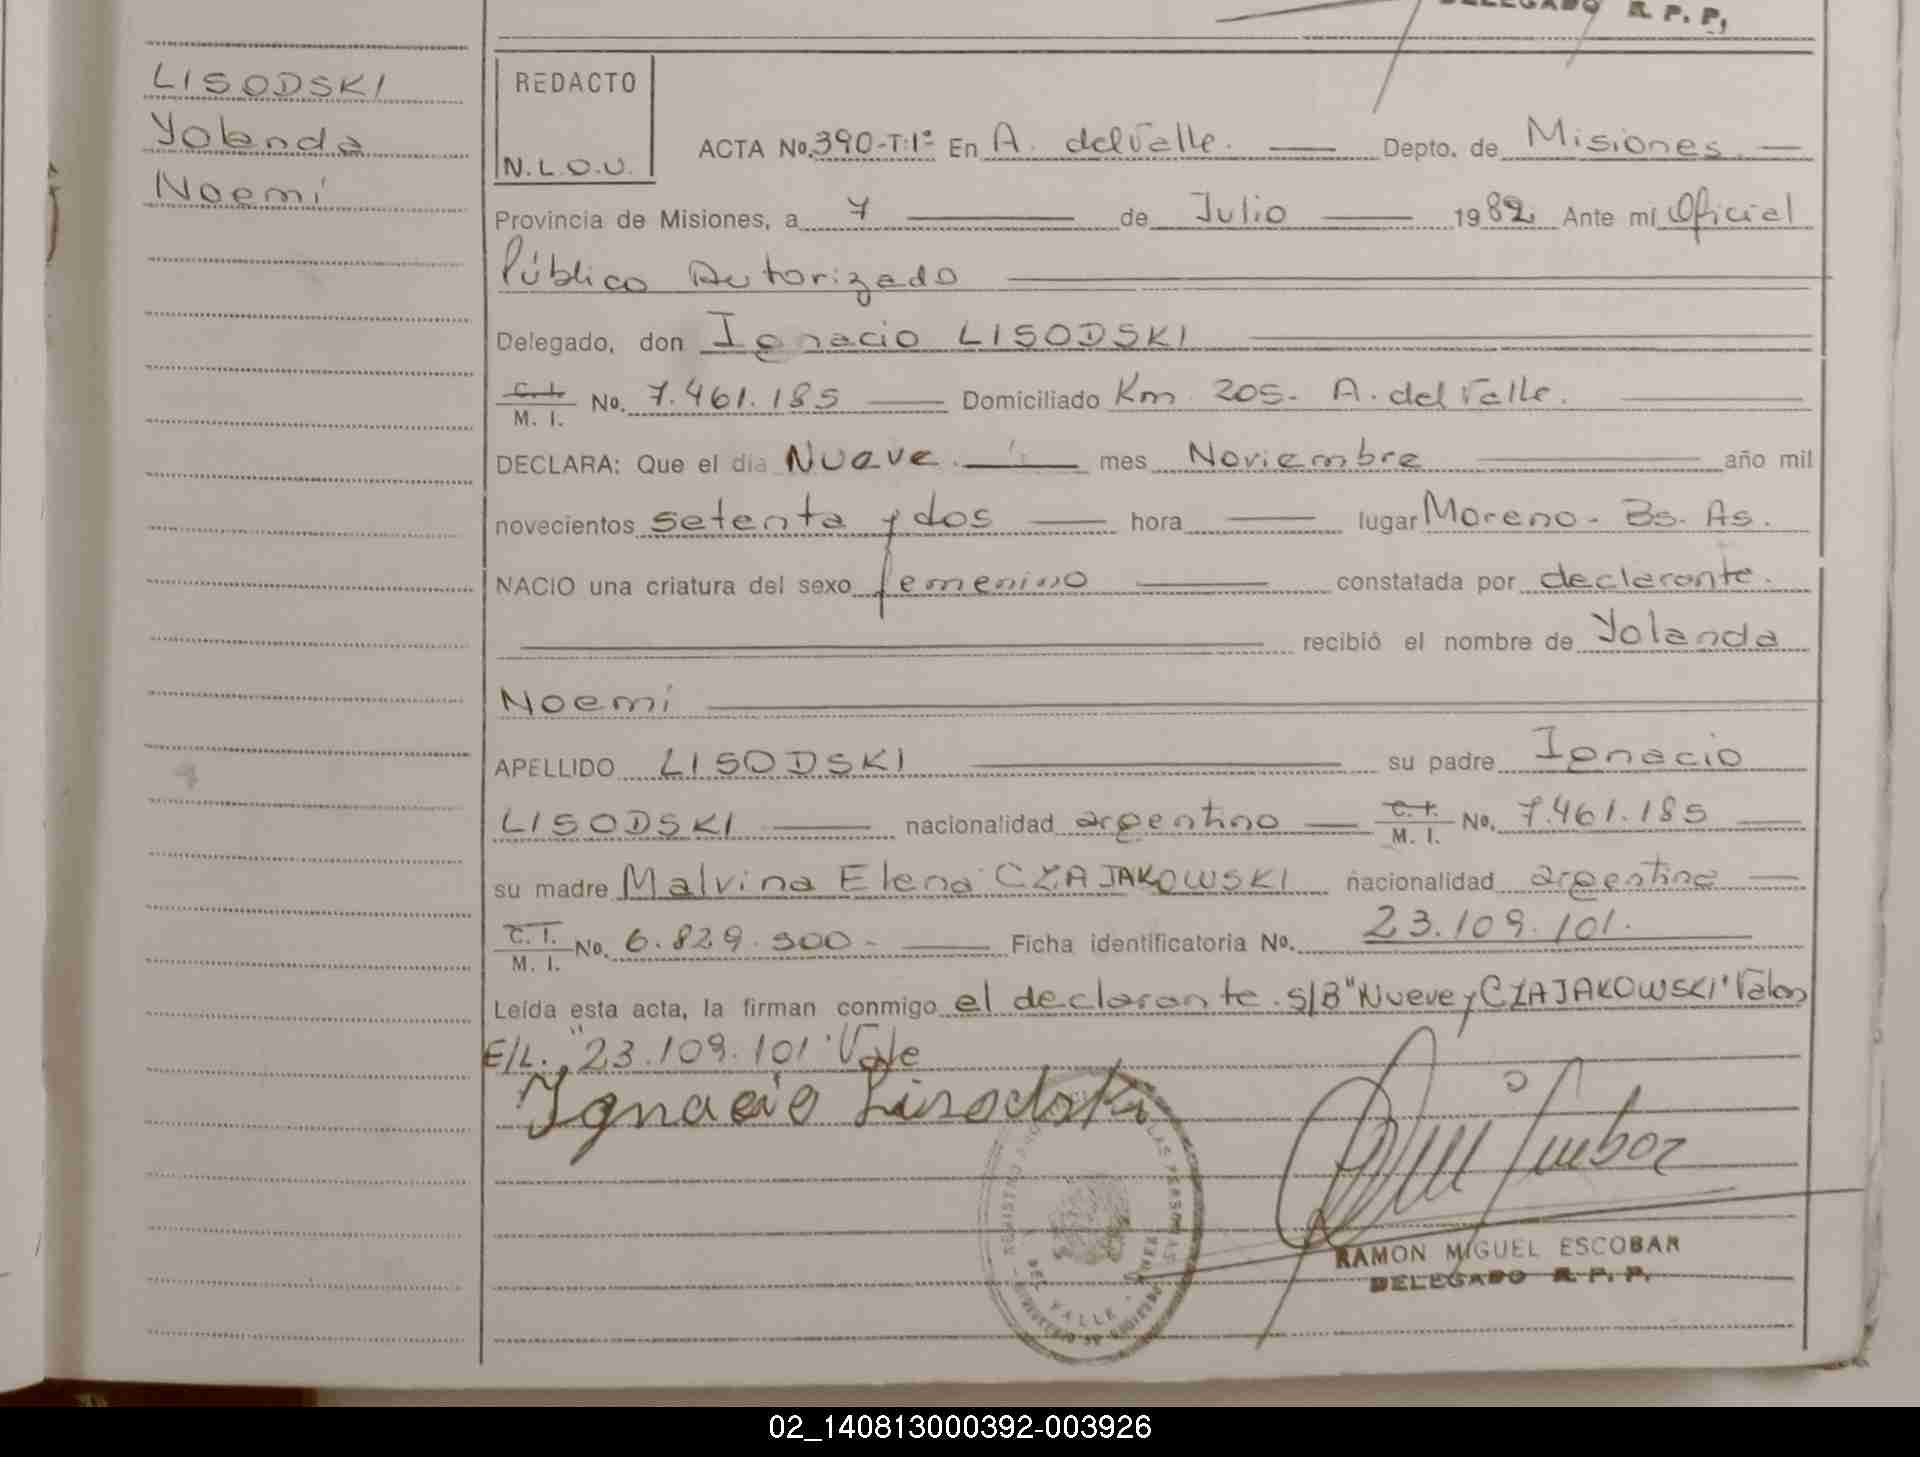 DELEGADO R. P. P,
LISODSKI
Yolanda
Noemí
REDACTO
N.L.O.U.
ACTA No. 390-T:1º En A. del Valle. Depto. de Misiones
Provincia de Misiones, a 7 de Julio 1982. Ante mi Oficial
Público Autorizado
Delegado, don Ignacio LISODSKI
C. I. M. I. No. 7.461.185 Domiciliado Km. 205- A. del Valle.
DECLARA: Que el día Nueve. mes Noviembre año mil
novecientos setenta y dos hora lugar Moreno- Bs. As.
NACIO una criatura del sexo femenino constatada por declarante.
recibió el nombre de Yolanda
Noemí
APELLIDO LISODSKI su padre Ignacio
LISODSKI nacionalidad argentino C. I. M. I. No. 7.461.185
su madre Malvina Elena CZAJAKOWSKI nacionalidad argentina
C. I. M. I. No. 6.829.900- Ficha identificatoria No. 23.109.101.
Leída esta acta, la firman conmigo el declarante. S/B "Nueve y CZAJAKOWSKI" Valen
E/L. "23.109.101" Vale
Ignacio Lisodski
DEL VALLE
RAMON MIGUEL ESCOBAR
DELEGADO R. P. P.
02_140813000392-003926